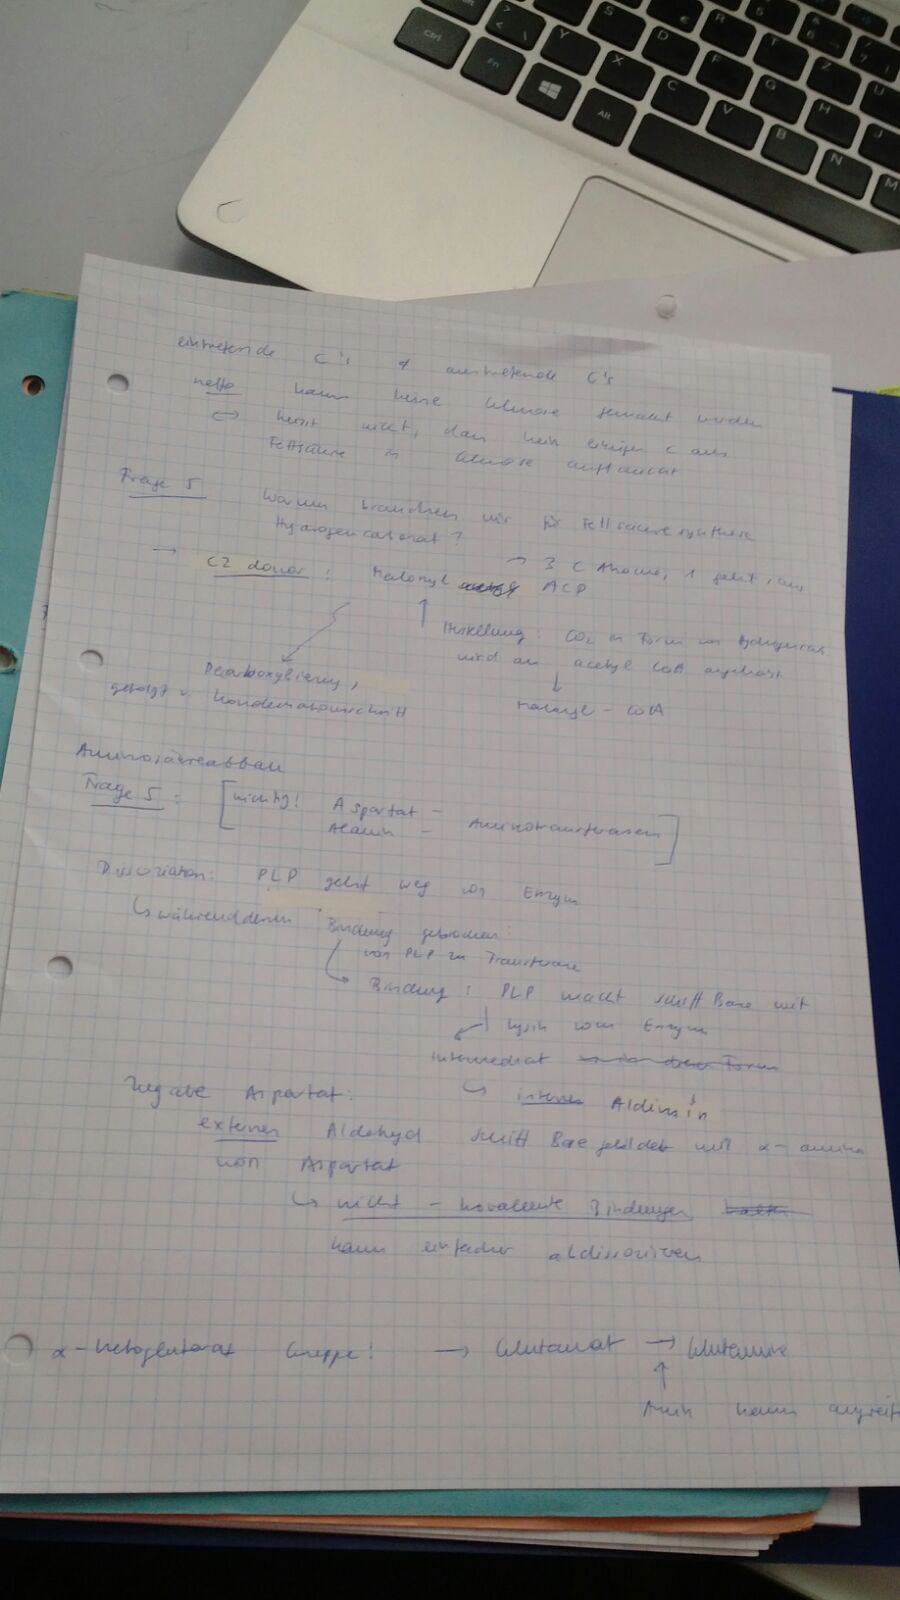 Ctrl
Fn
Alt
Y X C V B N M
S D F G H J
R T Z U
eintretende C's ≠ austretende C's
netto kann keine Glucose gemacht werden
↔ heisst nicht, dass kein einziges C aus
Fettsäure in Glucose auftaucht
Frage 5 Warum brauchen wir für Fettsäuresynthese
Hydrogencarbonat?
→ C2 donor: Malonyl ACP → 3 C Atome, 1 geht raus
Herstellung: CO2 in Form von Hydrogencarb
wird an acetyl CoA angehängt
Decarboxylierung,
gefolgt v. Kondensationsschritt
↓
Malonyl-CoA
Aminosäureabbau
Frage 5: [wichtig! Aspartat-
Alanin- Aminotransferasen]
Dissoziation: PLP geht weg von Enzym
↳ währenddessen Bindung gebrochen:
von PLP zu Transferase
→ Bindung: PLP macht Schiff Base mit
Lysin vom Enzym
Intermediat
↳ internes Aldimin
Zugabe Aspartat:
externes Aldehyd Schiff Base gebildet mit α-amino
von Aspartat
↳ nicht-kovalente Bindungen
kann einfacher abdissoziieren
α-Ketoglutarat Gruppe! → Glutamat → Glutamine
↑
kann angreif